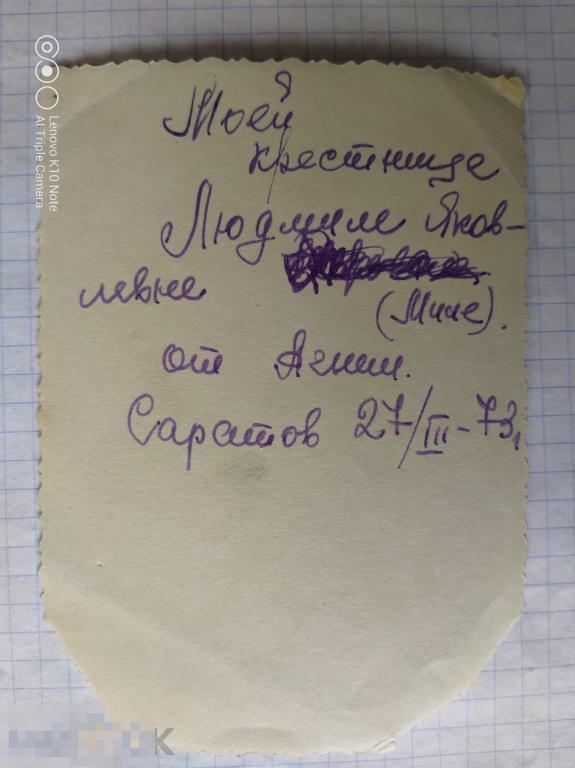 Моей
крестнице
Людмиле Яков-
левне
(Миле).
от Агнии.
Саратов 27/III-73,
Lenovo K10 Note
AI Triple Camera